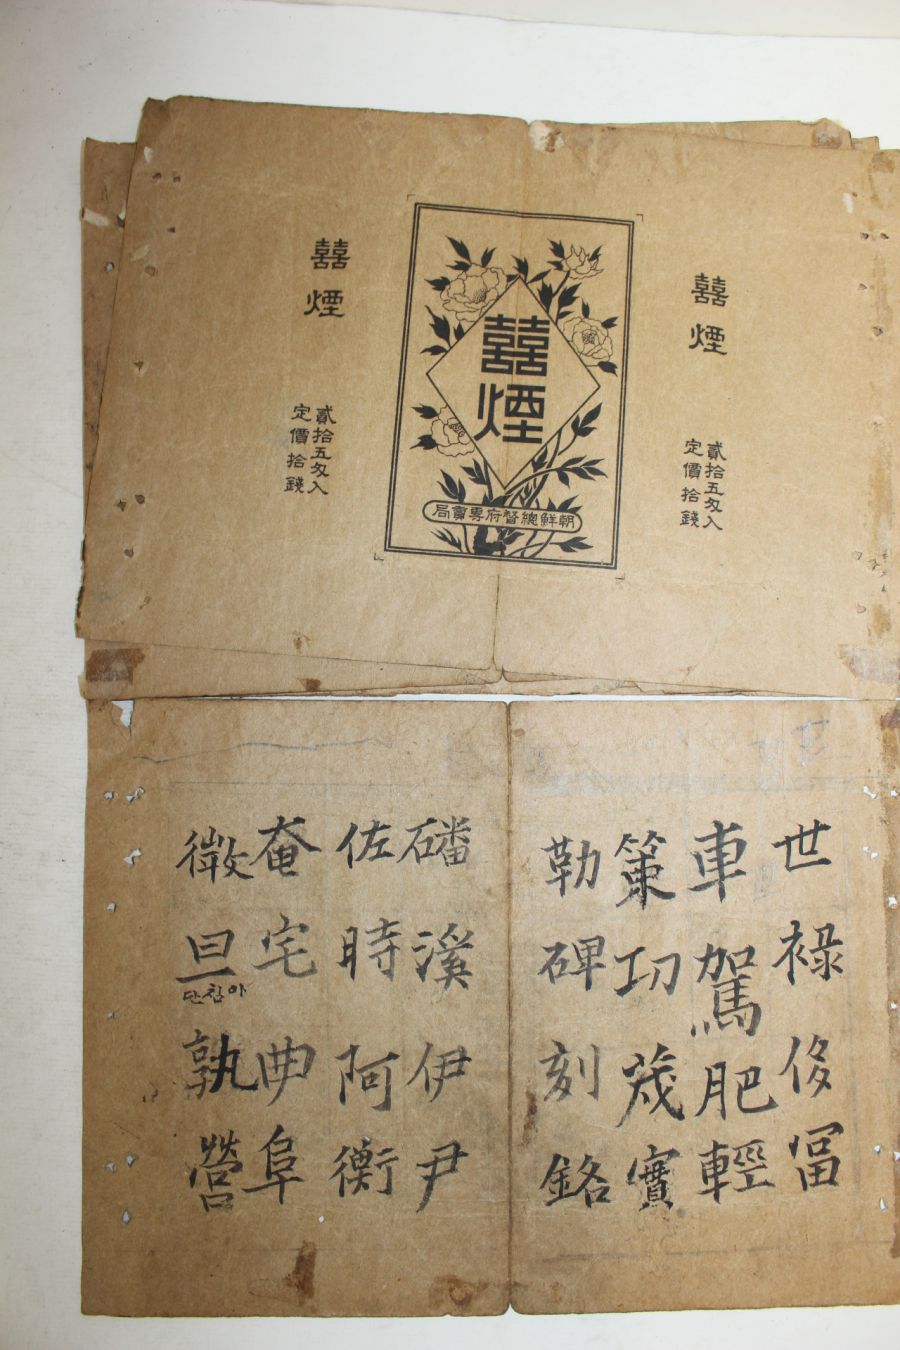 囍煙
貳拾五匁入
定價拾錢
囍煙
朝鮮總督府專賣局
囍煙
貳拾五匁入
定價拾錢
世祿侈冨
車駕肥輕
策功茂實
勒碑刻銘
磻溪伊尹
佐時阿衡
奄宅曲阜
微旦孰營
단 아침